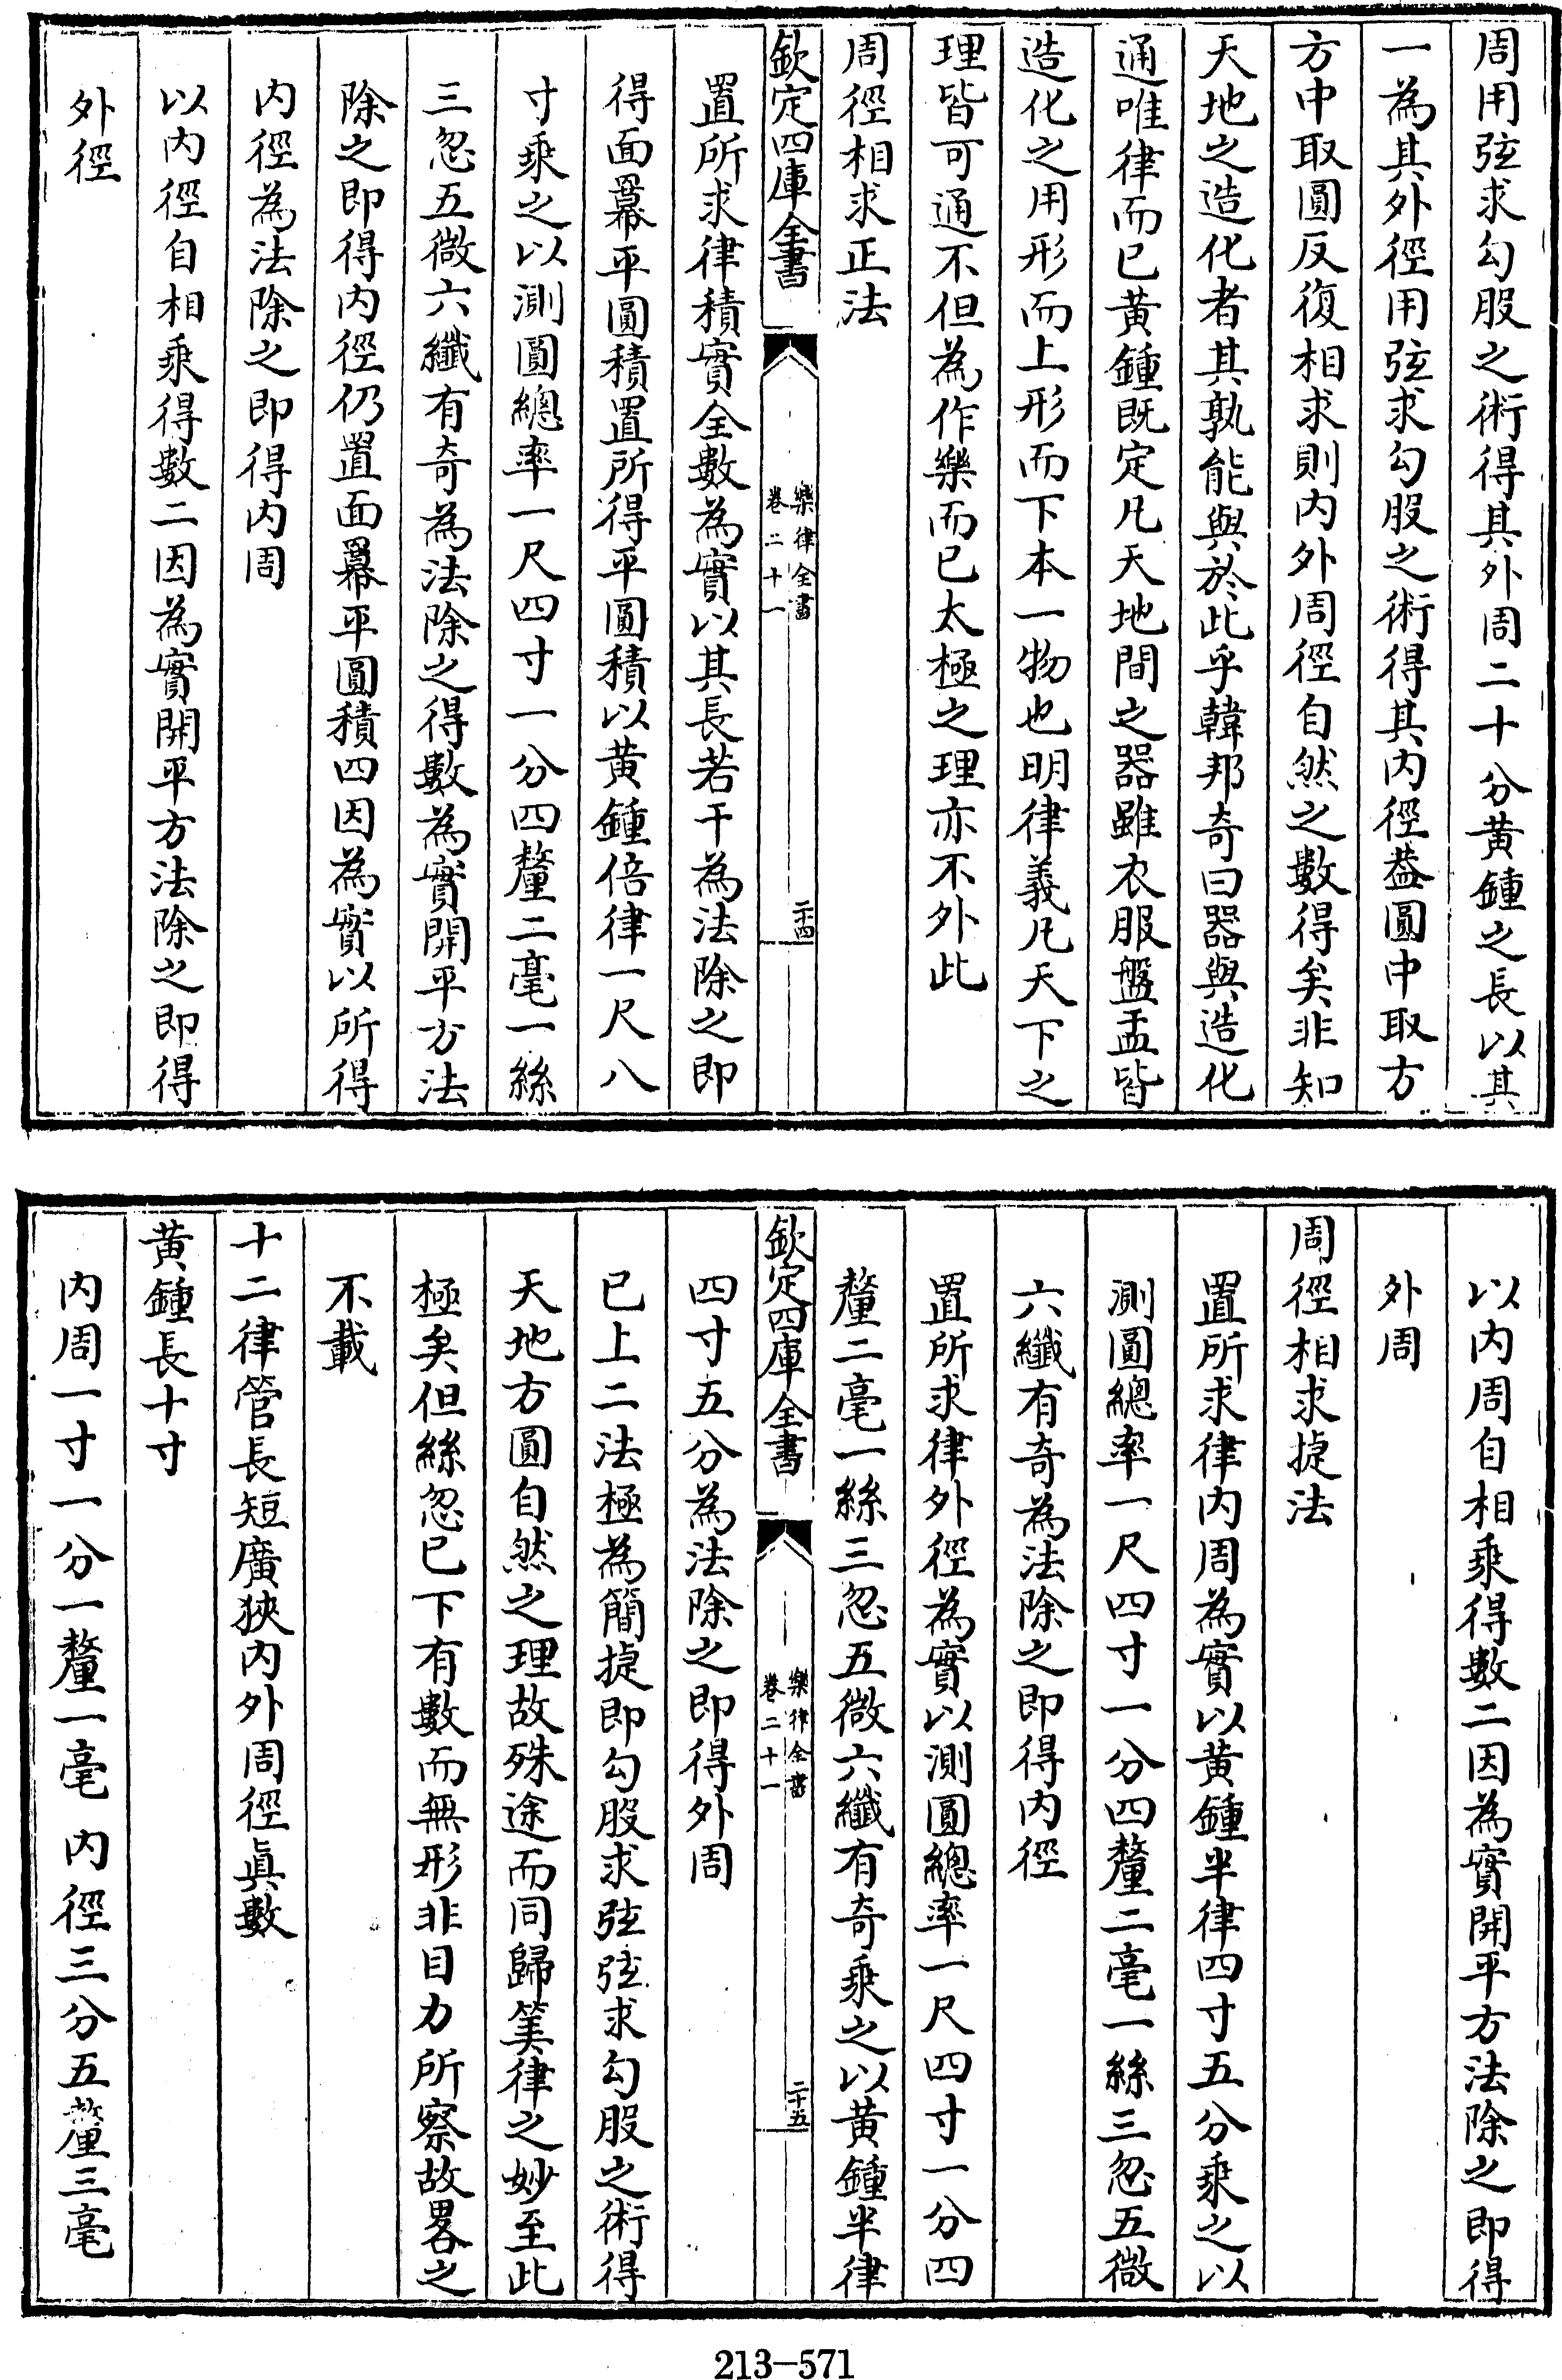 周用弦求勾股之術得其外周二十分黃鍾之長以其
一為其外徑用弦求勾股之術得其内徑葢圓中取方
方中取圓反復相求則内外周徑自然之數得矣非知
天地之造化者其孰能與於此乎韓邦奇曰器與造化
通唯律而已黃鍾既定凡天地間之器雖衣服盤盂皆
造化之用形而上形而下本一物也明律義凡天下之
理皆可通不但為作樂而已太極之理亦不外此
周徑相求正法
欽定四庫全書
樂律全書
卷二十一
二十四
置所求律積實全數為實以其長若干為法除之即
得面冪平圓積置所得平圓積以黃鍾倍律一尺八
寸乘之以測圓總率一尺四寸一分四釐二毫一絲
三忽五微六纖有奇為法除之得數為實開平方法
除之即得内徑仍置面冪平圓積四因為實以所得
内徑為法除之即得内周
以内徑自相乘得數二因為實開平方法除之即得
外徑
以内周自相乘得數二因為實開平方法除之即得
外周
周徑相求捷法
置所求律内周為實以黃鍾半律四寸五分乘之以
測圓總率一尺四寸一分四釐二毫一絲三忽五微
六纖有奇為法除之即得内徑
置所求律外徑為實以測圓總率一尺四寸一分四
釐二毫一絲三忽五微六纖有奇乘之以黃鍾半律
欽定四庫全書
樂律全書
卷二十一
二十五
四寸五分為法除之即得外周
已上二法極為簡捷即勾股求弦弦求勾股之術得
天地方圓自然之理故殊途而同歸筭律之妙至此
極矣但絲忽已下有數而無形非目力所察故畧之
不載
十二律管長短廣狹内外周徑眞數
黃鍾長十寸
内周一寸一分一釐一毫 内徑三分五釐三毫
213-571